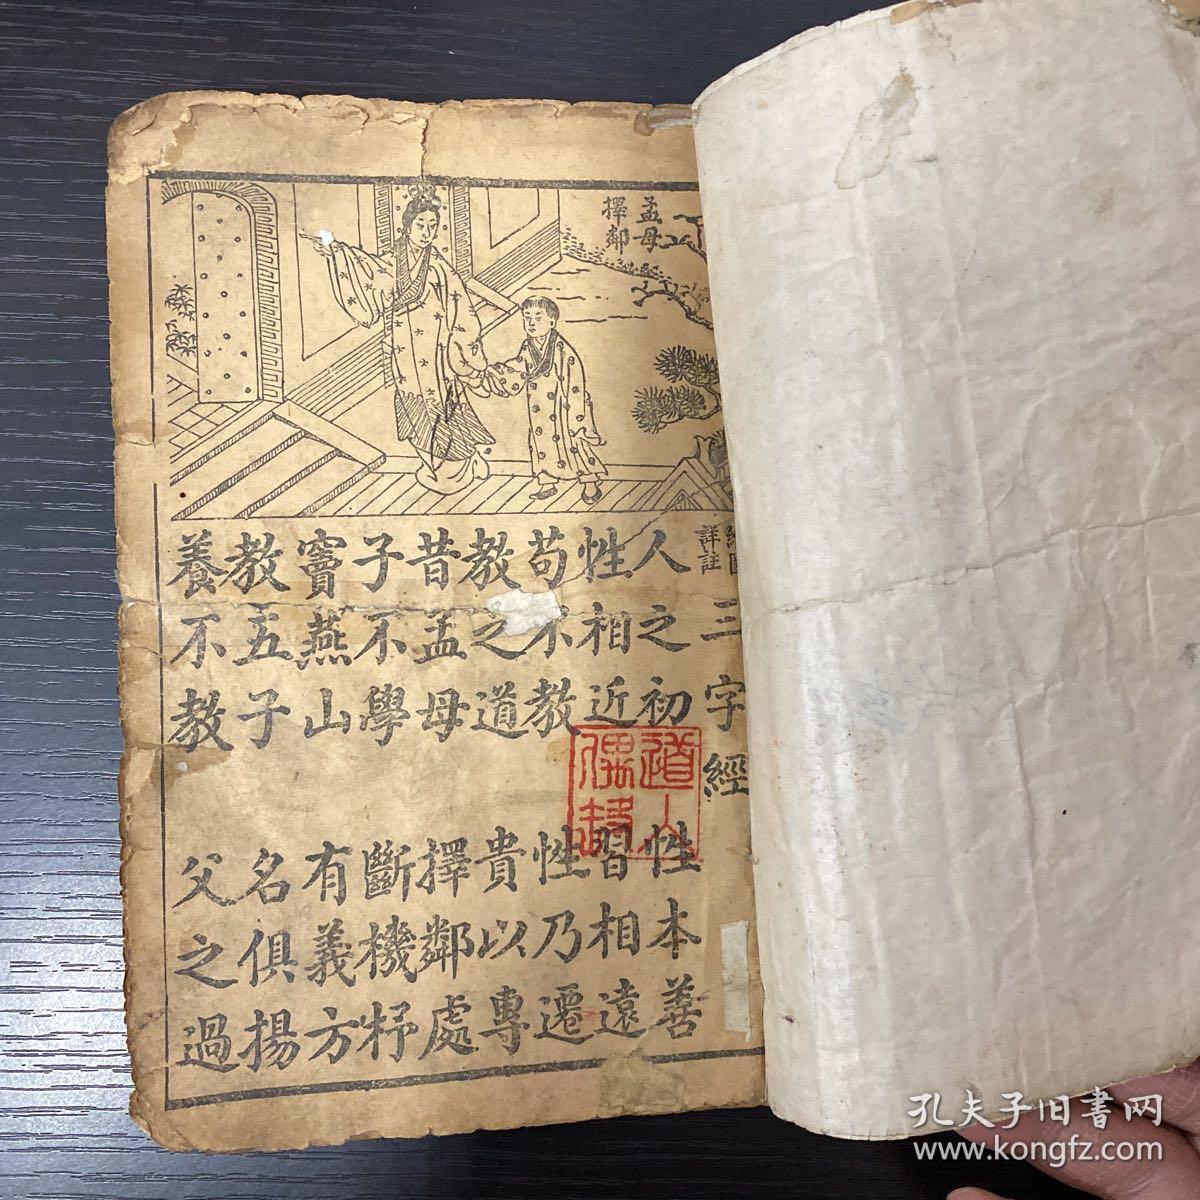 孟母
擇鄰
詳註
三字經
人之初 性本善
性相近 習相遠
苟不教 性乃遷
教之道 貴以專
昔孟母 擇鄰處
子不學 斷機杼
竇燕山 有義方
教五子 名俱揚
養不教 父之過
道人
孔夫子旧书网
www.kongfz.com